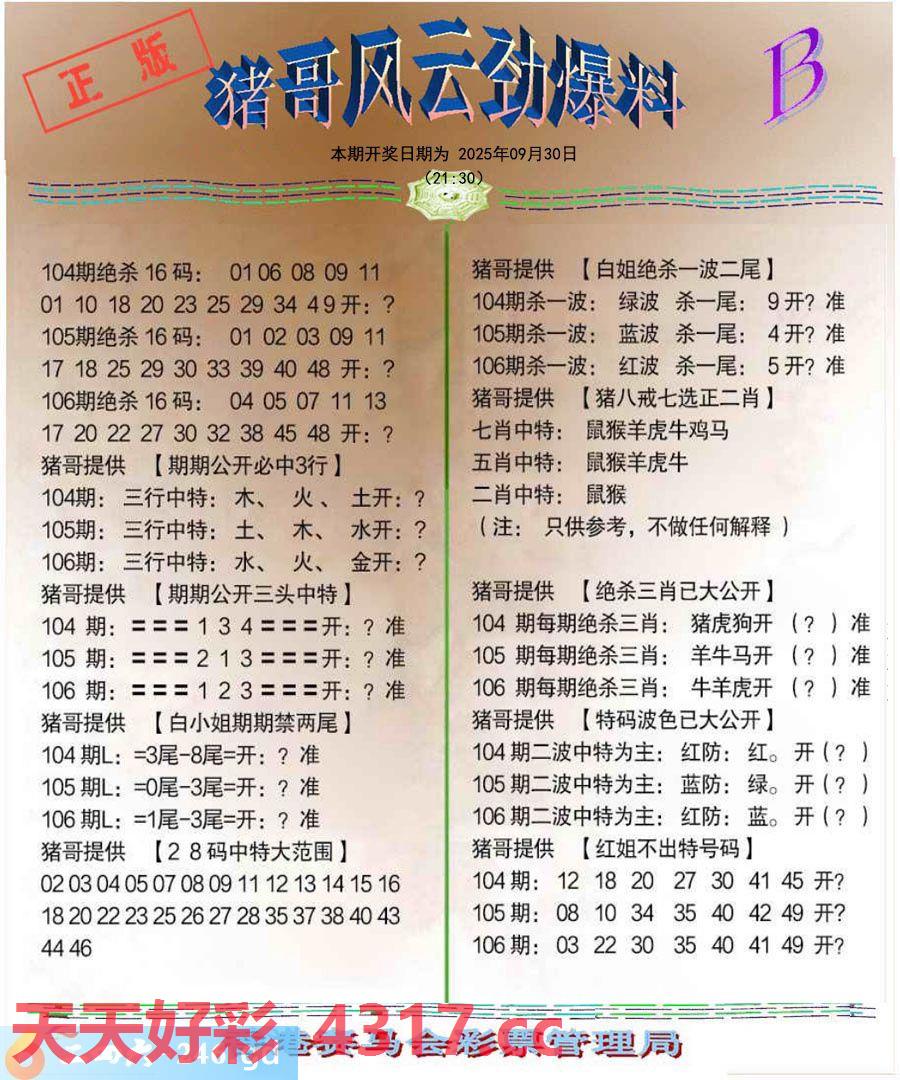 正版
猪哥风云劲爆料
B
本期开奖日期为 2025年09月30日
（21:30）
104期绝杀16码： 01 06 08 09 11
01 10 18 20 23 25 29 34 49开：？
105期绝杀16码： 01 02 03 09 11
17 18 25 29 30 33 39 40 48 开：？
106期绝杀16码： 04 05 07 11 13
17 20 22 27 30 32 38 45 48 开：？
猪哥提供 【期期公开必中3行】
104期： 三行中特： 木、 火、 土开：？
105期： 三行中特： 土、 木、 水开：？
106期： 三行中特： 水、 火、 金开：？
猪哥提供 【期期公开三头中特】
104 期：＝＝＝1 3 4＝＝＝开：？准
105 期：＝＝＝2 1 3＝＝＝开：？准
106 期：＝＝＝1 2 3＝＝＝开：？准
猪哥提供 【白小姐期期禁两尾】
104期L：=3尾-8尾=开：？准
105期L：=0尾-3尾=开：？准
106期L：=1尾-3尾=开：？准
猪哥提供 【２８码中特大范围】
02 03 04 05 07 08 09 11 12 13 14 15 16
18 20 22 23 25 26 27 28 35 37 38 40 43
44 46
猪哥提供 【白姐绝杀一波二尾】
104期杀一波： 绿波 杀一尾： 9开？准
105期杀一波： 蓝波 杀一尾： 4开？准
106期杀一波： 红波 杀一尾： 5开？准
猪哥提供 【猪八戒七选正二肖】
七肖中特： 鼠猴羊虎牛鸡马
五肖中特： 鼠猴羊虎牛
二肖中特： 鼠猴
（注： 只供参考，不做任何解释 ）
猪哥提供 【绝杀三肖已大公开】
104 期每期绝杀三肖： 猪虎狗开 （？）准
105 期每期绝杀三肖： 羊牛马开 （？）准
106 期每期绝杀三肖： 牛羊虎开 （？）准
猪哥提供 【特码波色已大公开】
104期二波中特为主：红防：红。开（？）
105期二波中特为主：蓝防：绿。开（？）
106期二波中特为主：红防：蓝。开（？）
猪哥提供 【红姐不出特号码】
104期： 12 18 20 27 30 41 45 开？
105期： 08 10 34 35 40 42 49 开？
106期： 03 22 30 35 40 41 49 开？
天天好彩 4317.cc
港赛马会彩票管理局